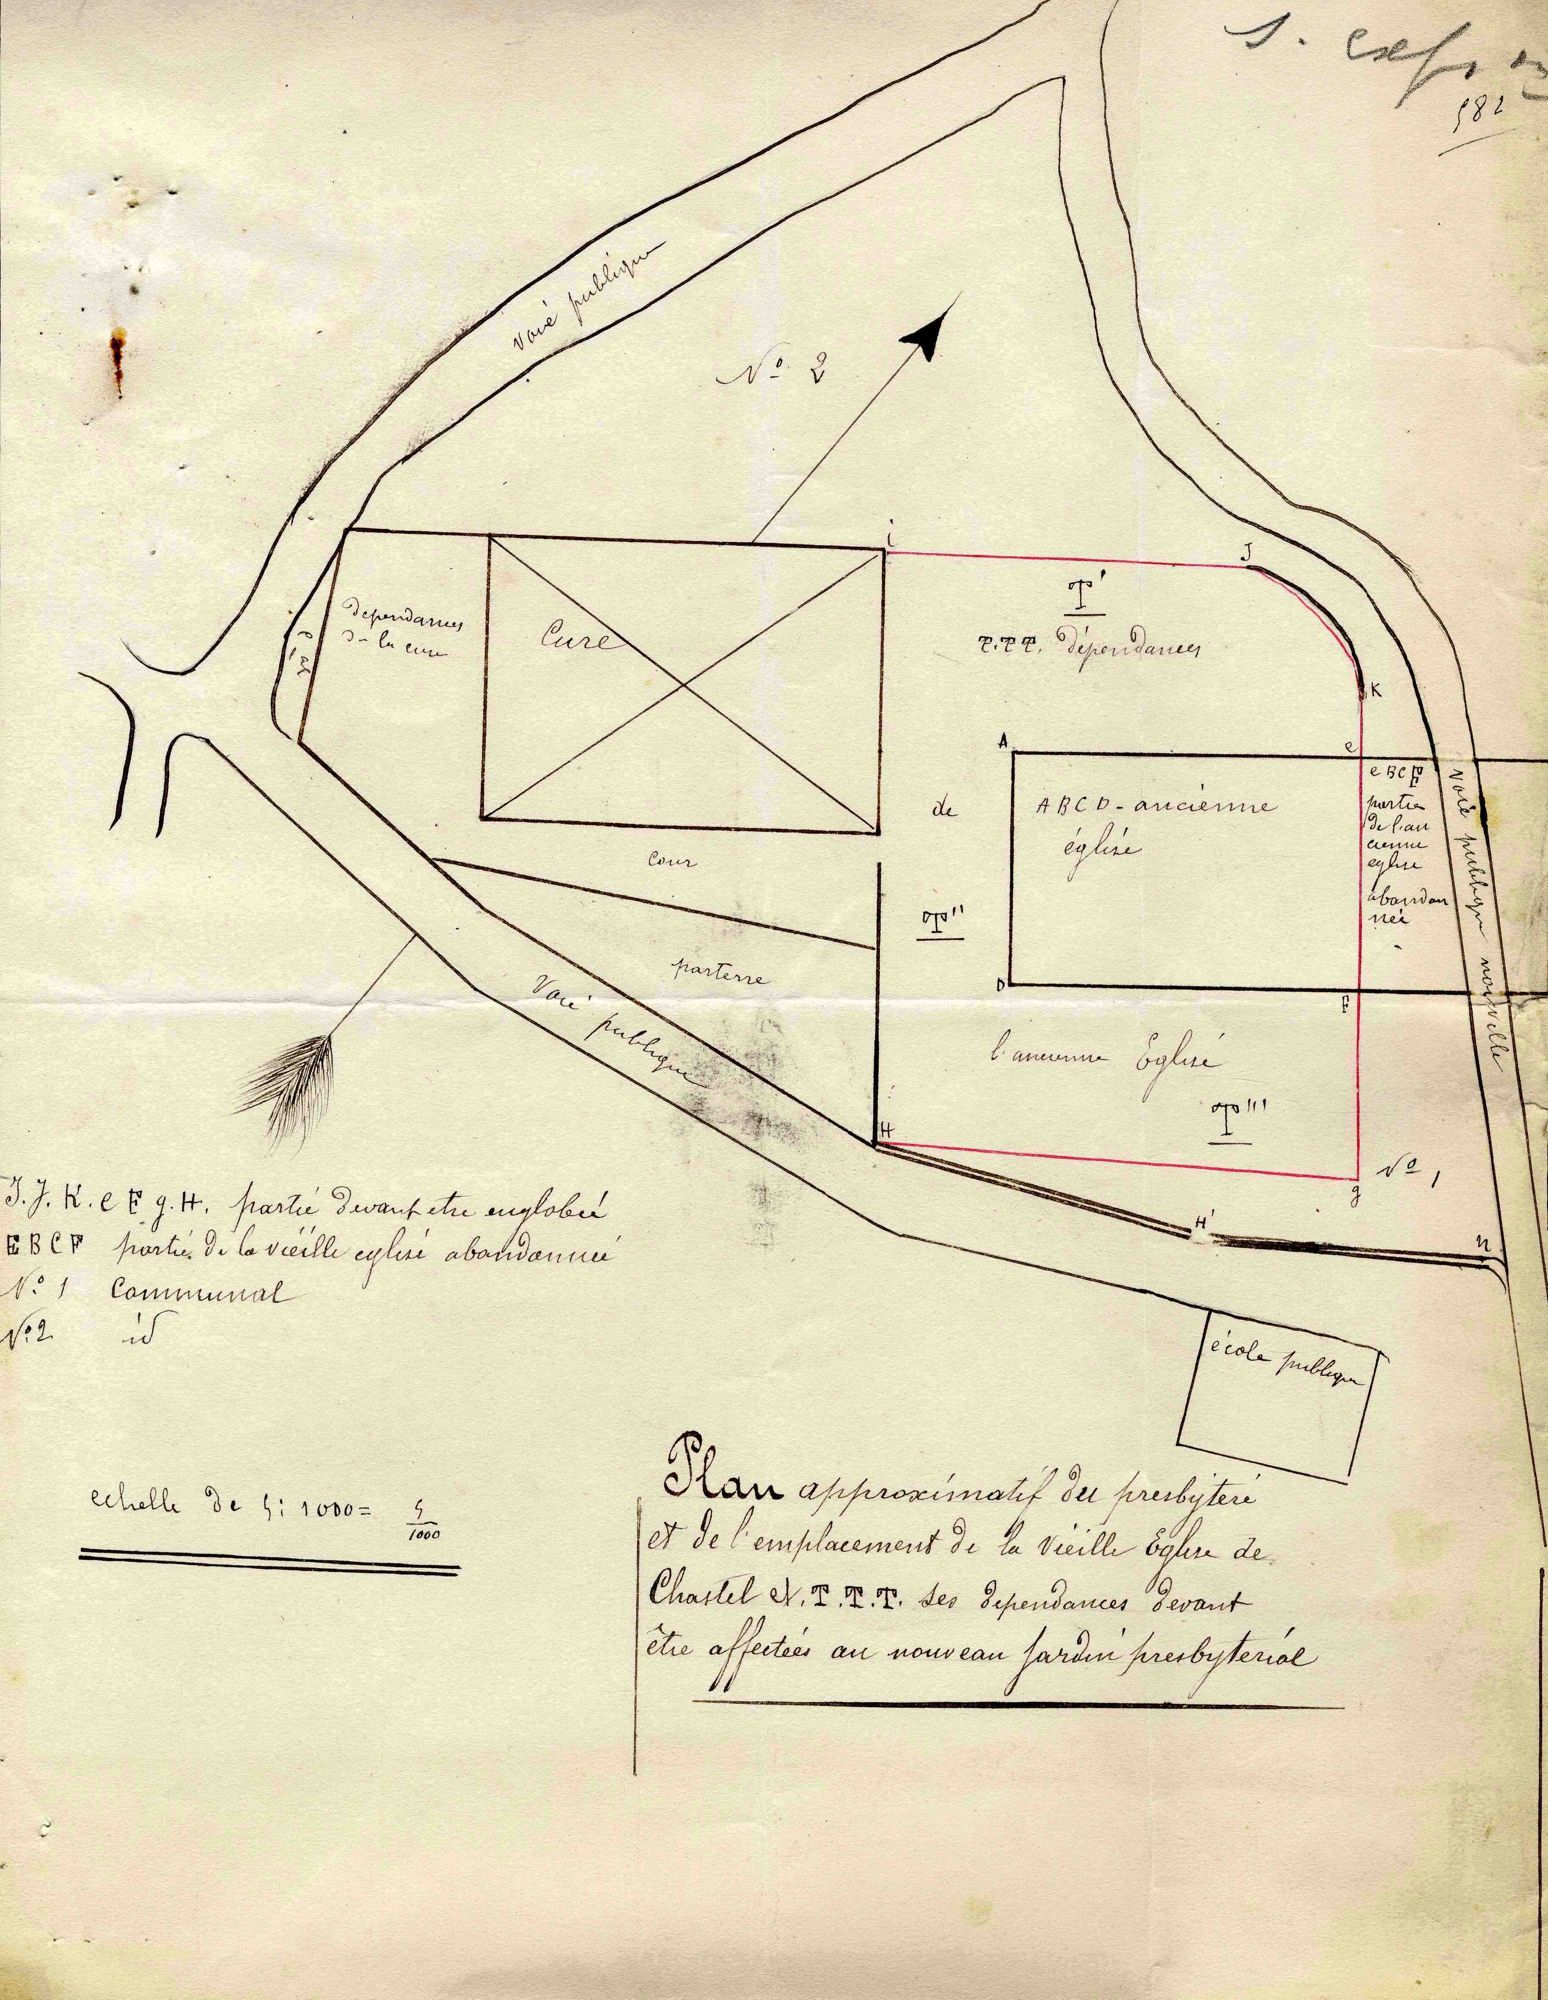 582
voie publique
No 2
i
J
T'
T.T.T. dépendances
dependances
de la cure
Cure
K
A
e
ABCD - ancienne
église
de
e BCF
partie
de l'an
cienne
eglise
abandon
née
voie publique nouvelle
cour
T''
parterre
D
F
voie publique
l'ancienne Eglise
T'''
H
No 1
g
H'
n
I.J.K.e F g.H. partie devant etre englobée
E B C F partie de la vieille eglise abandonnée
No. 1 Communal
No. 2 id
école publique
echelle de 5: 1000 = 5/1000
Plan approximatif du presbytère
et de l'emplacement de la vieille Eglise de
Chastel N. T. T. T. ses dependances devant
être affectées au nouveau jardin presbyterial